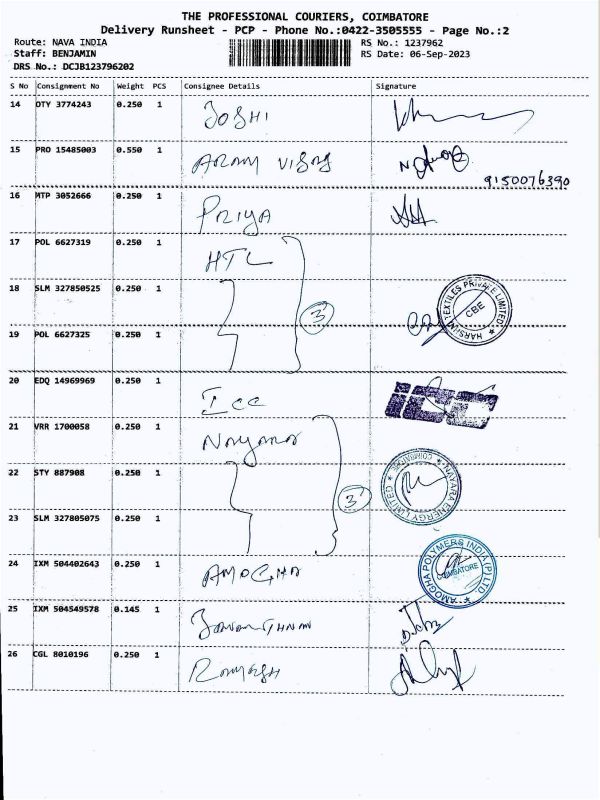 THE PROFESSIONAL COURIERS, COIMBATORE
Delivery Runsheet - PCP - Phone No.:0422-3505555 - Page No.:2
Route: NAVA INDIA RS No.: 1237962
Staff: BENJAMIN RS Date: 06-Sep-2023
DRS No.: DCJB123796202
S No Consignment No Weight PCS Consignee Details Signature
14 OTY 3774243 0.250 1 JOSHI
15 PRO 15485003 0.550 1
9150076390
16 MTP 3052666 0.250 1 PRIYA
17 POL 6627319 0.250 1 HTL
18 SLM 327850525 0.250 1 3 HARSHNI TEXTILES PRIVATE LIMITED. CBE
19 POL 6627325 0.250 1
20 EDQ 14969969 0.250 1 ICC icc
21 VRR 1700058 0.250 1 NAYARA
22 STY 887908 0.250 1 3 NAYARA ENERGY LIMITED COIMBATORE
23 SLM 327805075 0.250 1
24 IXM 504402643 0.250 1 AMOGHA AMOGHA POLYMERS INDIA (P) LTD. COIMBATORE
25 IXM 504549578 0.145 1
26 CGL 8010196 0.250 1 RAMESH